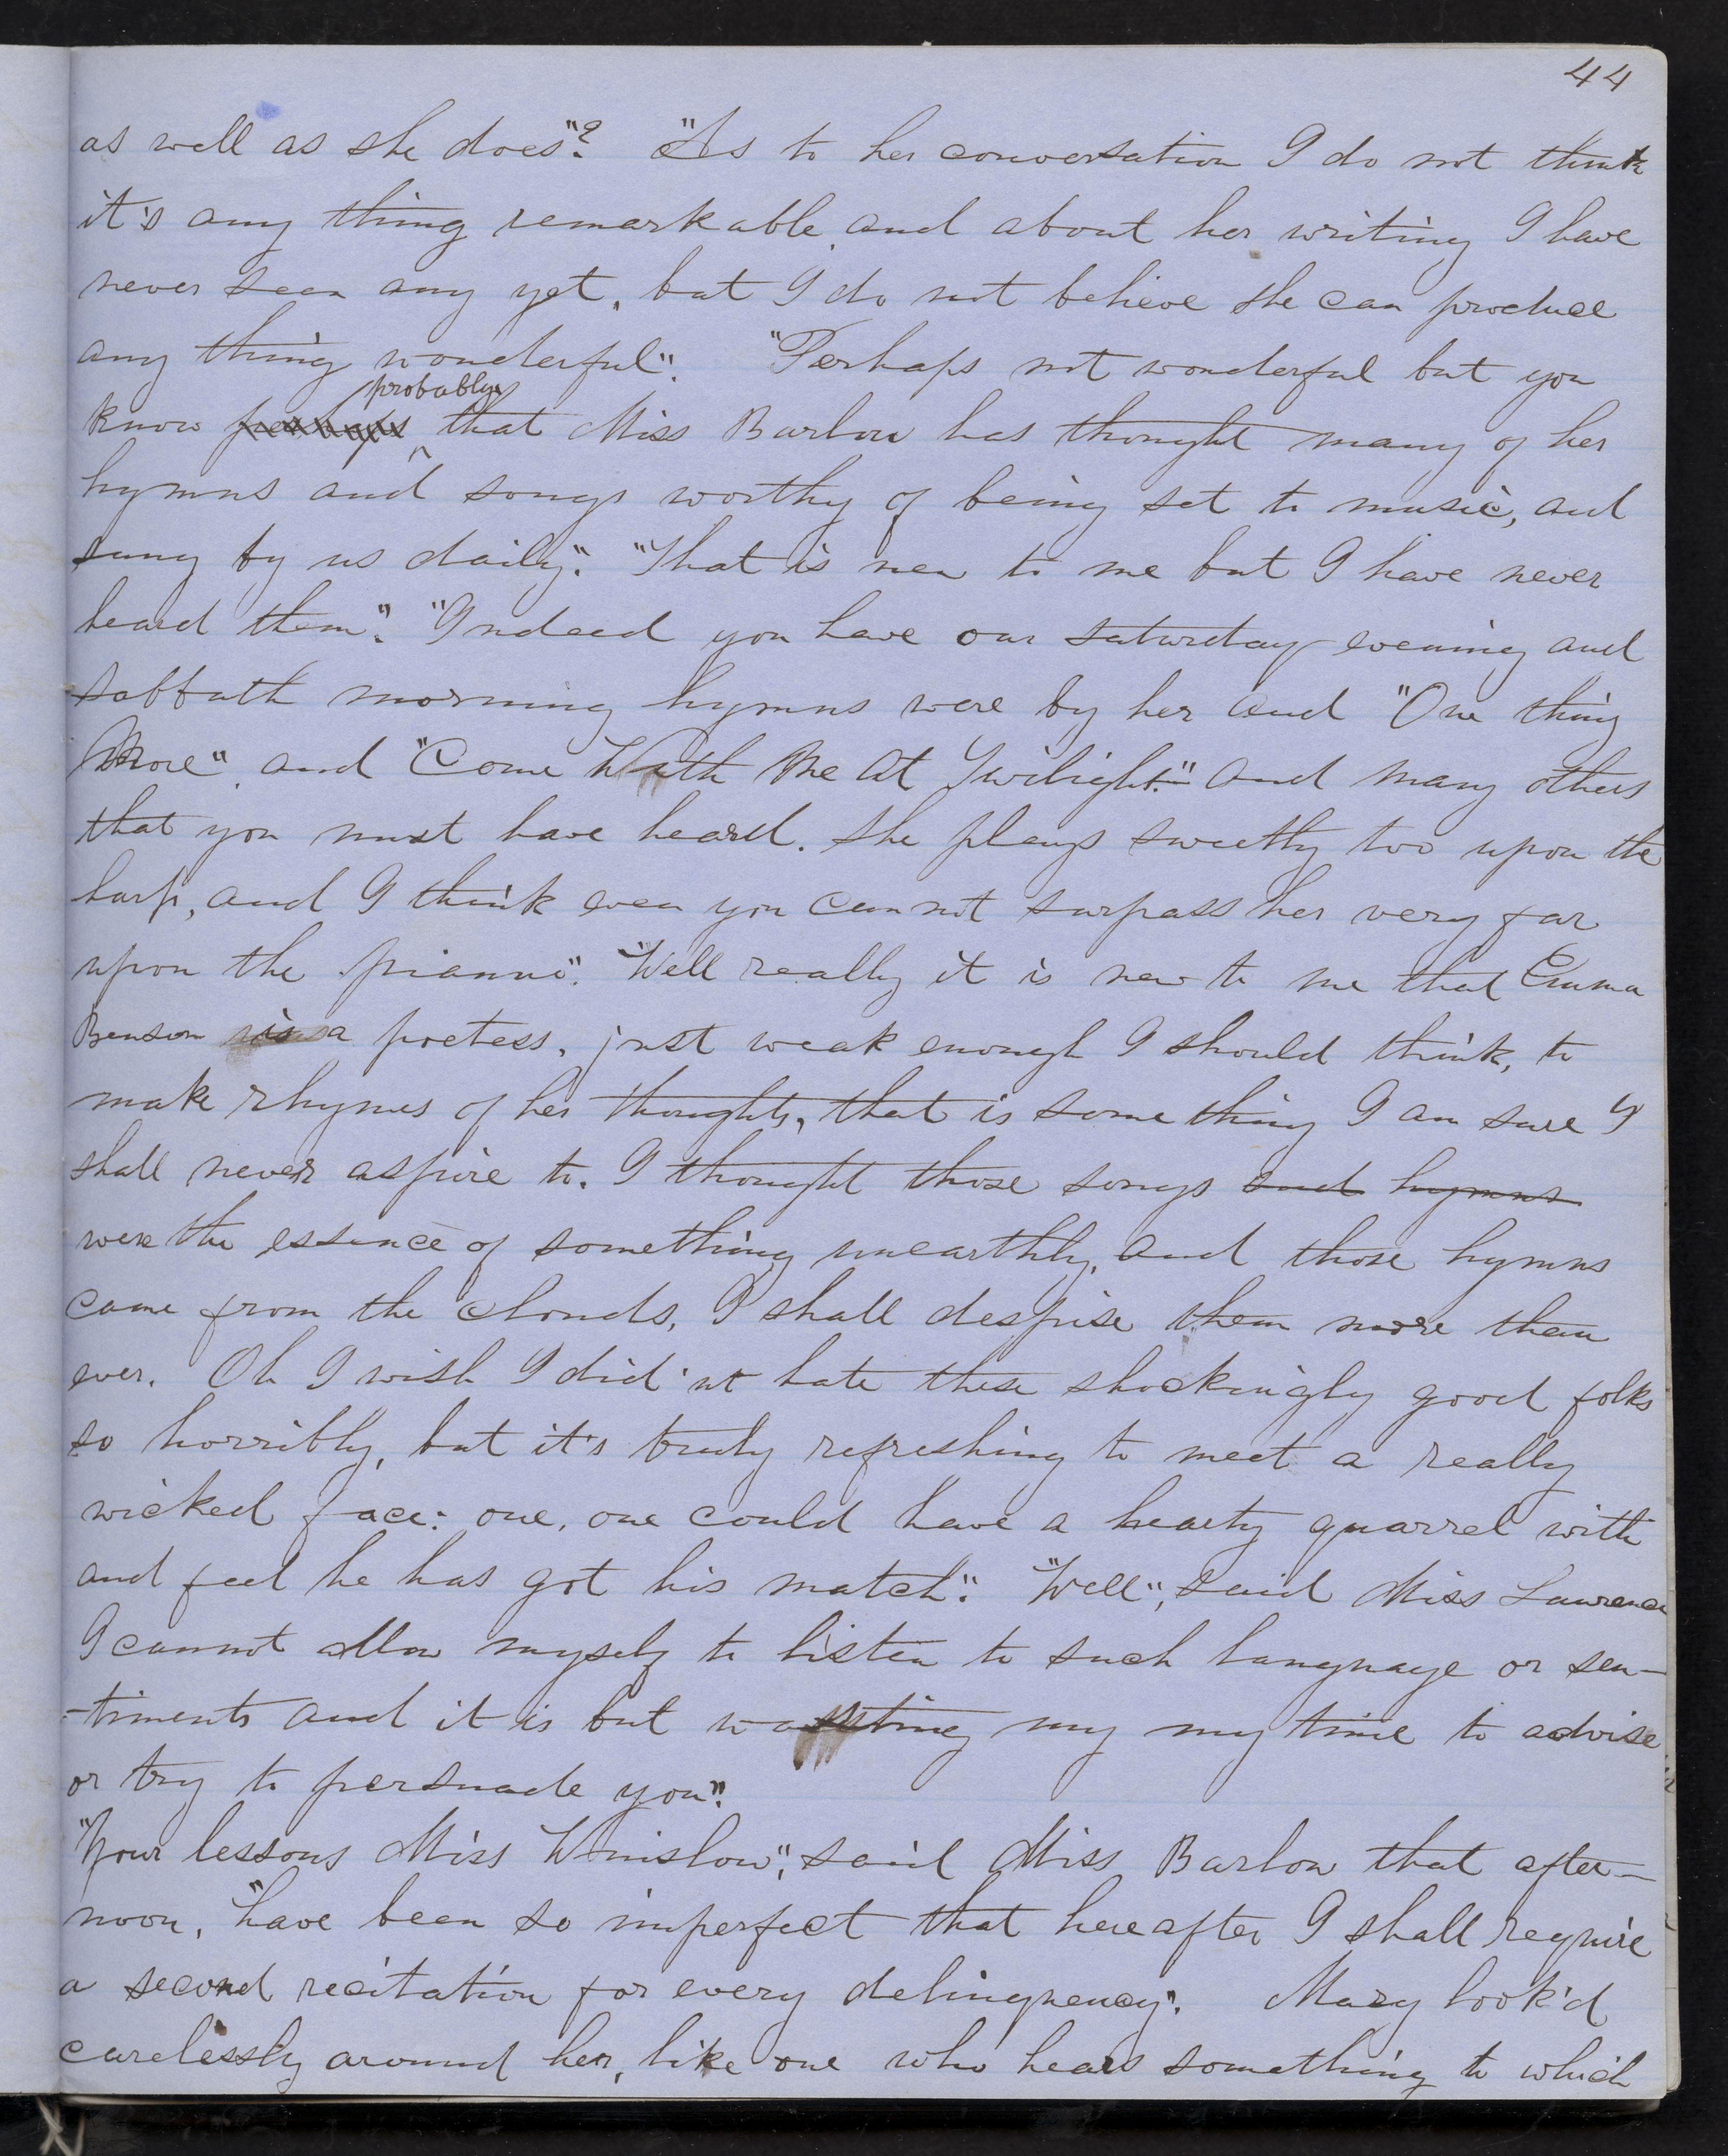 44
as well as she does"? "As to her conversation I do not think
it's any thing remarkable and about her writing I have
never seen any yet, but I do not believe she can produce
any thing wonderful". "Perhaps not wonderful but you
probably
know perhaps that Miss Barlow has thought many of her
hymns and songs worthy of being set to music, and
sung by us daily". "That is new to me but I have never
heard them". "Indeed you have our saturday evening and
sabbath morning hymns were by her and "One thing
More" and "Come With Me At Twilight." and many others
that you must have heard. She plays sweetly too upon the
harp, and I think even you can not surpass her very far
upon the pianno". "Well really it is new to me that Emma
Benson is a poetess, just weak enough I should think, to
make rhymes of her thoughts, that is some thing I am sure I
shall never aspire to. I thought those songs and hymns
were the essence of something unearthly, and those hymns
came from the clouds, I shall despise them more than
ever. Oh I wish I did'nt hate these shockingly good folks
so horribly, but it's truly refreshing to meet a really
wicked face: one, one could have a hearty quarrel with
and feel he has got his match". "Well", said Miss Lawrence
I cannot allow myself to listen to such language or sen-
-timents and it is but wasting my my time to advise
or try to persuade you".
"Your lessons Miss Winslow", said Miss Barlow that after-
noon, "have been so imperfect that hereafter I shall require
a second recitation for every delinquency". Mary look'd
carelessly around her, like one who hears something to which